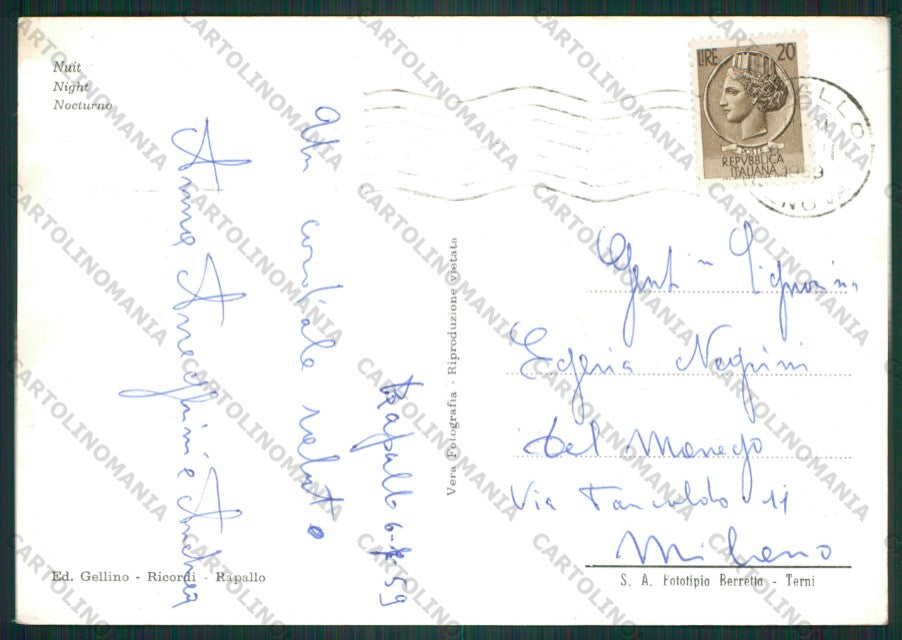 Nuit
Night
Nocturno
LIRE 20
REPVBBLICA
ITALIANA
1959
Un cordiale saluto
Anna e Andrea
Rapallo 6-8-59
Vera Fotografia - Riproduzione vietata
Gent.ma Signorina
Egeria Negrini
del Manego
Via Tancoldo 11
Milano
Ed. Gellino - Ricordi - Rapallo
S. A. Fototipia Berretta - Terni
CARTOLINOMANIA